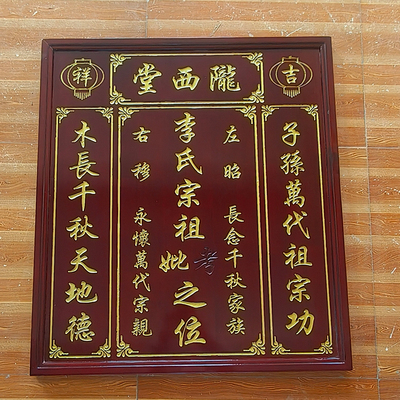 吉
隴西堂
祥
子孫萬代祖宗功
左昭 長念千秋家族
李氏宗祖考妣之位
右穆 永懷萬代宗親
木長千秋天地德